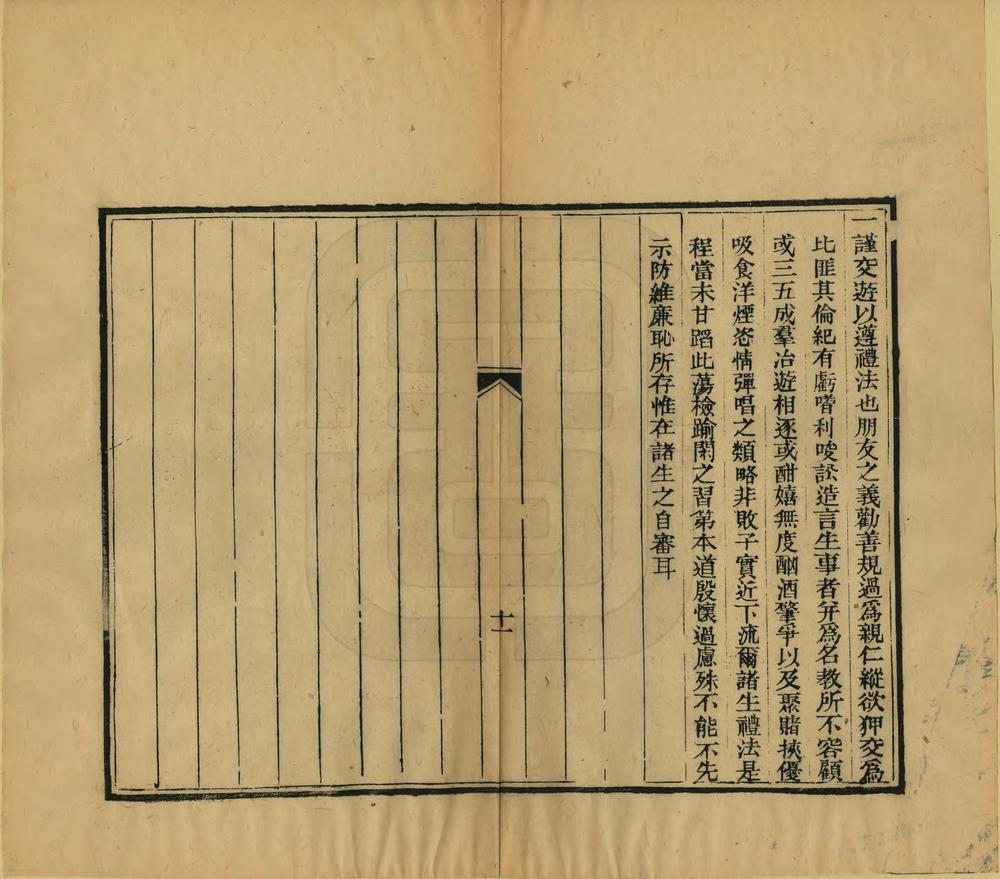 一謹交遊以遵禮法也朋友之義勸善規過爲親仁縱欲狎交爲
比匪其倫紀有虧嗜利唆訟造言生事者身爲名教所不容顧
或三五成羣冶遊相逐或酣嬉無度酗酒肇爭以及聚賭挾優
吸食洋煙恣情彈唱之類略非敗子實近下流爾諸生禮法是
程當未甘蹈此蕩檢踰閑之習第本道殷懷過慮殊不能不先
示防維廉恥所存惟在諸生之自審耳
十一